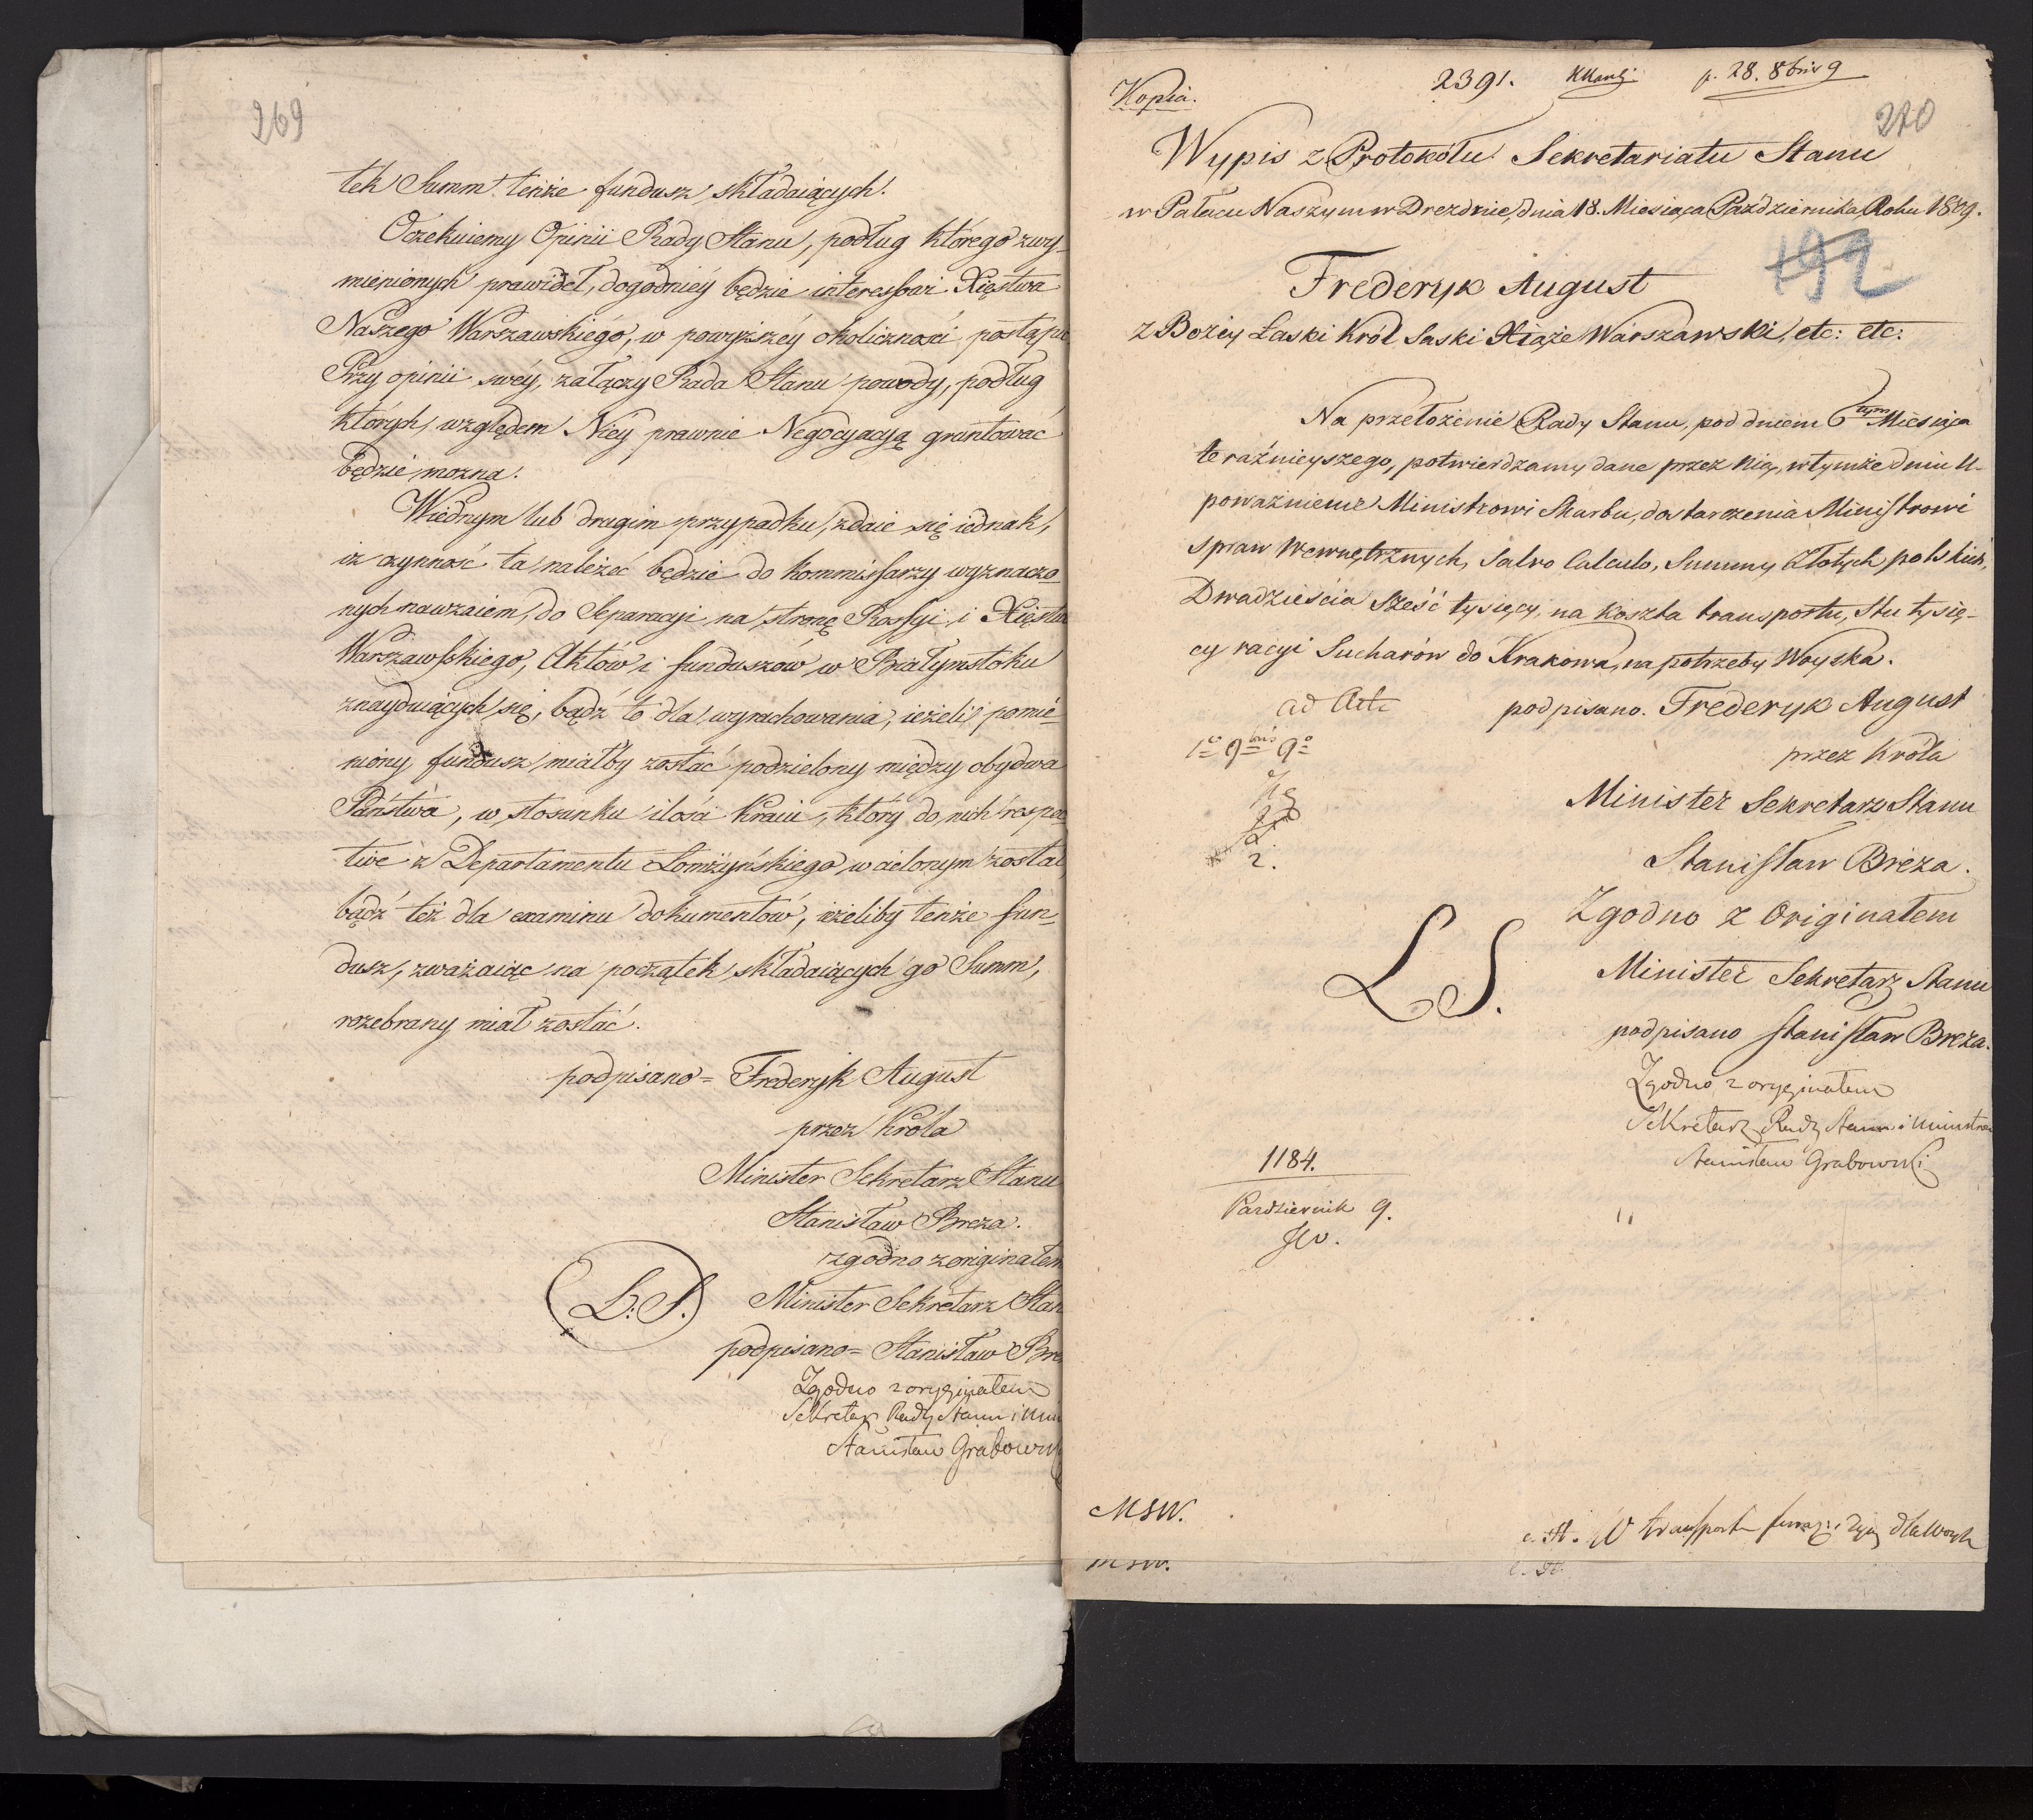 269
tek Summ tenże fundusz składaiących.
Oczekuiemy Opinii Rady Stanu, podług którego z wy-
mienionych prawideł, dogodniéy będzie interessowi Xięstwa
Naszego Warszawskiégo, w powyższéy okoliczności postąpić
Przy opinii swéy, załączy Rada Stanu powody, podług
których, względem Niéy prawnie Negocyacyą gruntować
będzie można.
W iednym lub drugim przypadku, zdaie się iednak,
iż czynność ta należeć będzie do Kommissarzy wyznaczo-
nych nawzaiem, do Separacyi na stronę Rossyi i Xięstwa
Warszawskiego, Aktów i funduszów w Białymstoku
znayduiących się, bądź to dla wyrachowania, ieżeli pomie-
niony fundusz miałby zostać podzielony między obydwa
Państwa, w stosunku ilości Kraiu, który do nich respec
tive z Departamentu Łomżyńskiego wcielonym został
bądź też dla examinu dokumentów, ieżeliby tenże fun-
dusz, zważaiąc na początek składaiących go Summ,
rozebrany miał zostać.
podpisano = Frederyk August
przez Króla
Minister Sekretarz Stanu
Stanisław Breza.
zgodno z originałem
L. S. Minister Sekretarz Stan
podpisano = Stanisław Bre
Zgodno z oryginałem
Sekretarz Rady Stanu i Min
Stanisław Grabows
Kopia. 2391. 28. 8bris 9
270
Wypis z Protokółu Sekretariatu Stanu
w Pałacu Naszym w Dreznie, dnia 18. Miesiąca Października Roku 1809.
192
Frederyk August
z Bożey Łaski Król Saski Xiąże Warszawski, etc: etc:
Na przełożenie Rady Stanu, pod dniem 6tym Miesiąca
teraźnieyszego, potwierdzamy dane przez Nię, w tymże dniu U-
poważnienie Ministrowi Skarbu, dostarczenia Ministrowi
Spraw Wewnętrznych, Salvo Calculo, Summy Złotych polskich,
Dwadzieścia Sześć tysięcy, na koszta transportu, Stu tysię-
cy racyi Sucharów do Krakowa, na potrzeby Woyska.
ad Acta podpisano. Frederyk August
1o 9bris 9o
przez Króla
Minister Sekretarz Stanu
2.
Stanisław Breza.
Zgodno z Originałem
L S. Minister Sekretarz Stanu
podpisano Stanisław Breza.
Zgodno z oryginałem
Sekretarz Rady Stanu i Ministrów
Stanisław Grabowski
1184.
Pazdziernik 9.
MSW.
transport dla Woysk
MSW.